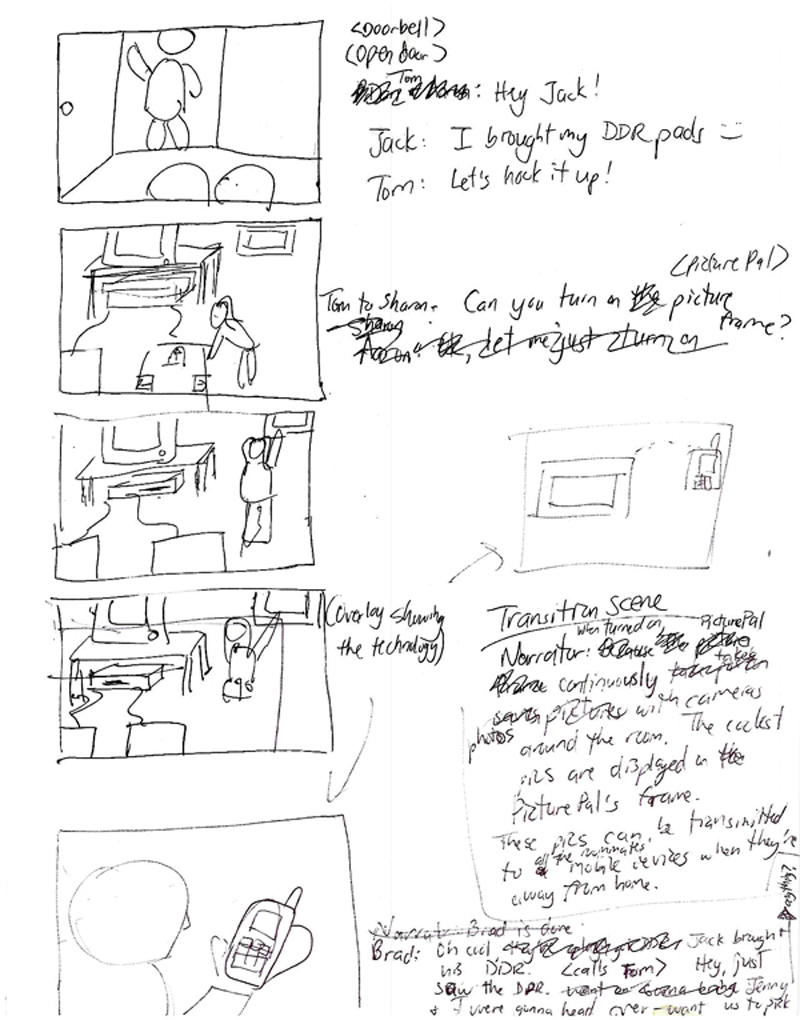 <Doorbell>
(Open door)
Tom: Hey Jack!
Jack: I brought my DDR pads
Tom: Let's hook it up!
<picturePal>
Tom to Sharon: Can you turn on the picture
frame?
Sharon
let me just turn on
(overlay showing
the technology)
Transition Scene
when turned on, PicturePal
Narrator:
continuously takes
photos with cameras
around the room. The coolest
pics are displayed in the
PicturePal's frame.
These pics can be transmitted
to all the roommates' mobile devices when they're
away from home.
Narrator: Brad is gone
Brad: Oh cool Jack brought
his DDR. <calls Tom> Hey, just
saw the DDR. Jenny
& I were gonna head over - want us to pick